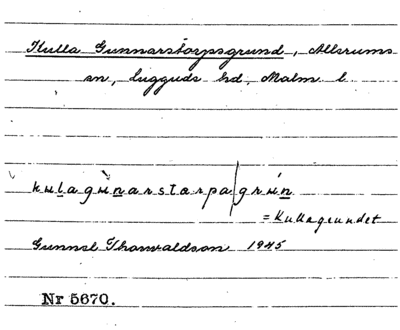 Kulla Gunnarstorpsgrund, Allerums
sn, Luggude hd, Malm. l.
kulagùnarstarpa/grún
=Kullagrundet
Gunnel Thorvaldson 1945
Nr 5670.